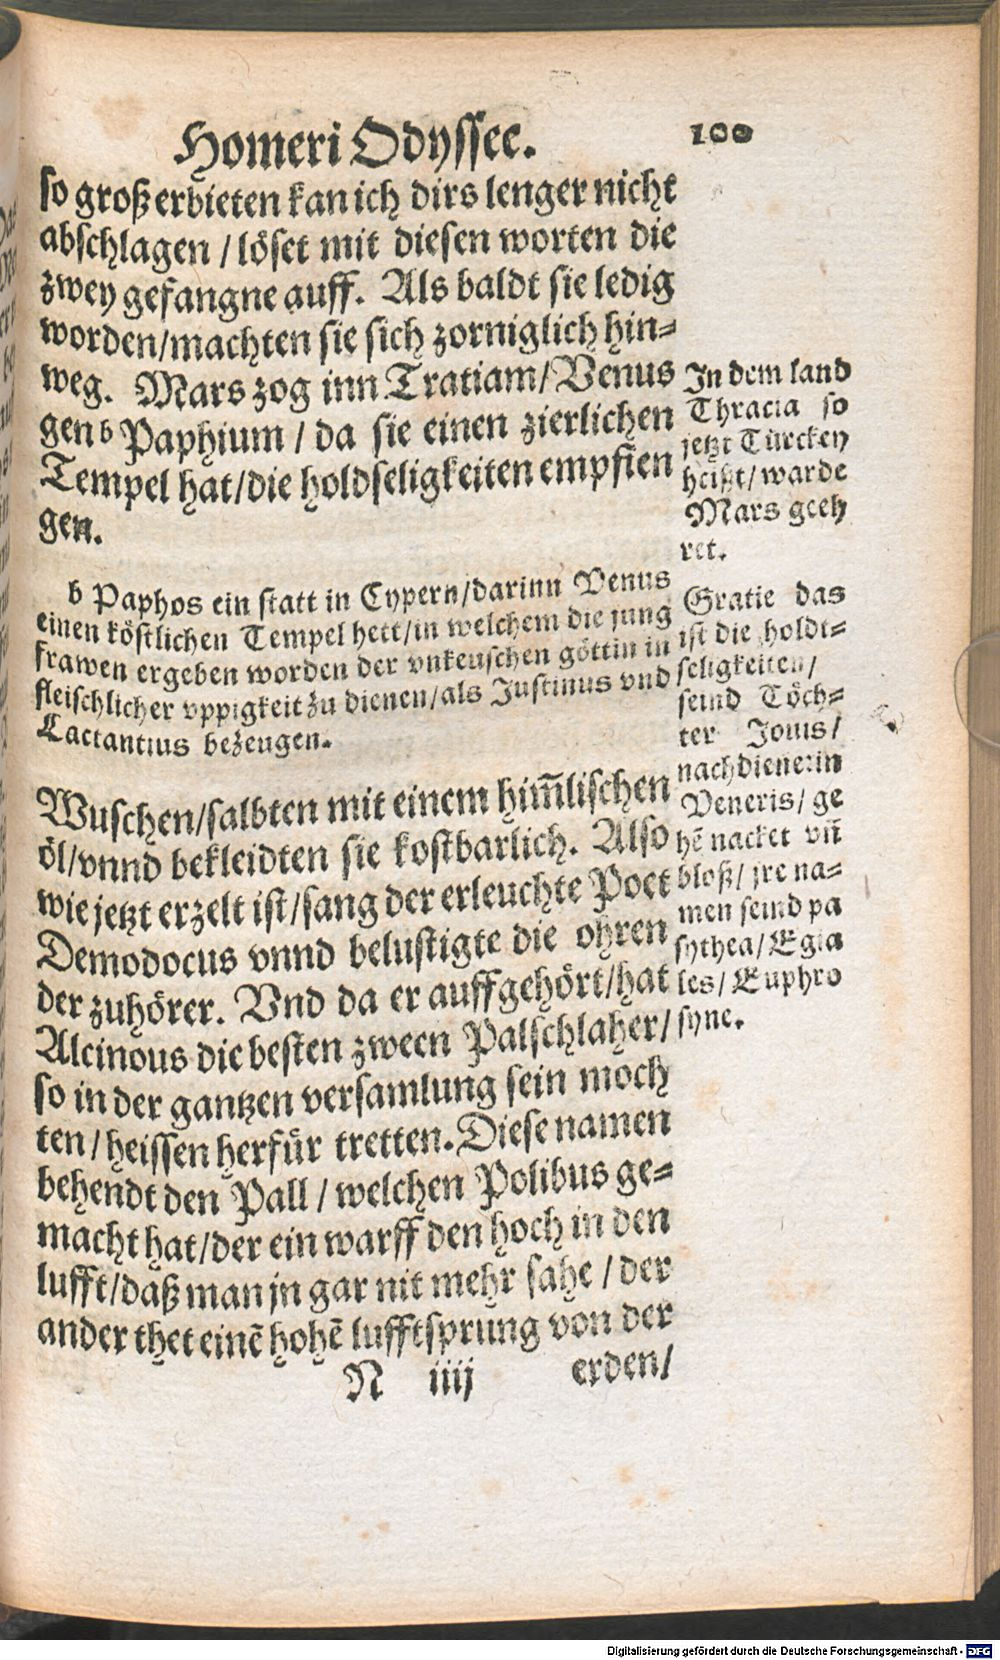 Homeri Odyssee. 100
so groß erbieten kan ich dirs lenger nicht
abschlagen / löset mit diesen worten die
zwey gefangne auff. Als baldt sie ledig
worden/machten sie sich zorniglich hin=
weg. Mars zog inn Tratiam/Venus
gen b Paphium / da sie einen zierlichen
Tempel hat/die holdseligkeiten empfien
gen.
In dem land
Thracia so
jetzt Türckey
heißt/ warde
Mars geeh
ret.
b Paphos ein statt in Cypern/darinn Venus
einen köstlichen Tempel hett/in welchem die jung
frawen ergeben worden der vnkeuschen göttin in
fleischlicher vppigkeit zu dienen/als Justinus vnd
Lactantius bezeugen.
Gratie das
ist die holdt=
seligkeiten/
seind Töch=
ter Jouis/
nachdienerin
Veneris/ ge
hē nacket vñ
bloß/ jre na=
men seind pa
sythea/Egia
les/ Euphro
syne.
Wuschen/salbten mit einem him̃lischen
öl/vnnd bekleidten sie kostbarlich. Also
wie jetzt erzelt ist/sang der erleuchte Poet
Demodocus vnnd belustigte die ohren
der zuhörer. Vnd da er auffgehört/hat
Alcinous die besten zween Palschlaher/
so in der gantzen versamlung sein moch
ten/heissen herfür tretten. Diese namen
behendt den Pall / welchen Polibus ge=
macht hat/der ein warff den hoch in den
lufft/daß man jn gar nit mehr sahe / der
ander thet einē hohē lufftsprung von der
N iiij erden/
Digitalisierung gefördert durch die Deutsche Forschungsgemeinschaft - DFG